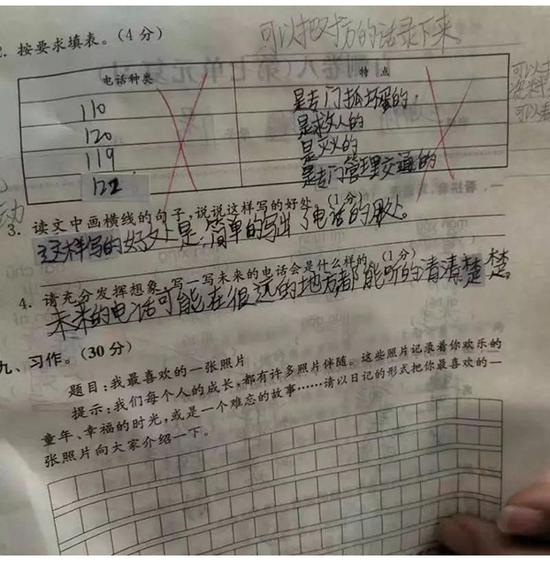 可以把对方的话录下来。
2. 按要求填表。(4 分)
电话种类 特 点
110 是专门抓坏蛋的
120 是救人的
119 是灭火的
122 是专门管理交通的
3. 读文中画横线的句子,说说这样写的好处。(1 分)
这样写的好处是:简单的写出了电话的用处。
4. 请充分发挥想象,写一写未来的电话会是什么样的。(1 分)
未来的电话可能在很远的地方都能听的清清楚楚。
九、习作。(30 分)
题目:我最喜欢的一张照片
提示:我们每个人的成长,都有许多照片伴随。这些照片记录着你欢乐的
童年、幸福的时光,或是一个难忘的故事……请以日记的形式把你最喜欢的一
张照片向大家介绍一下。